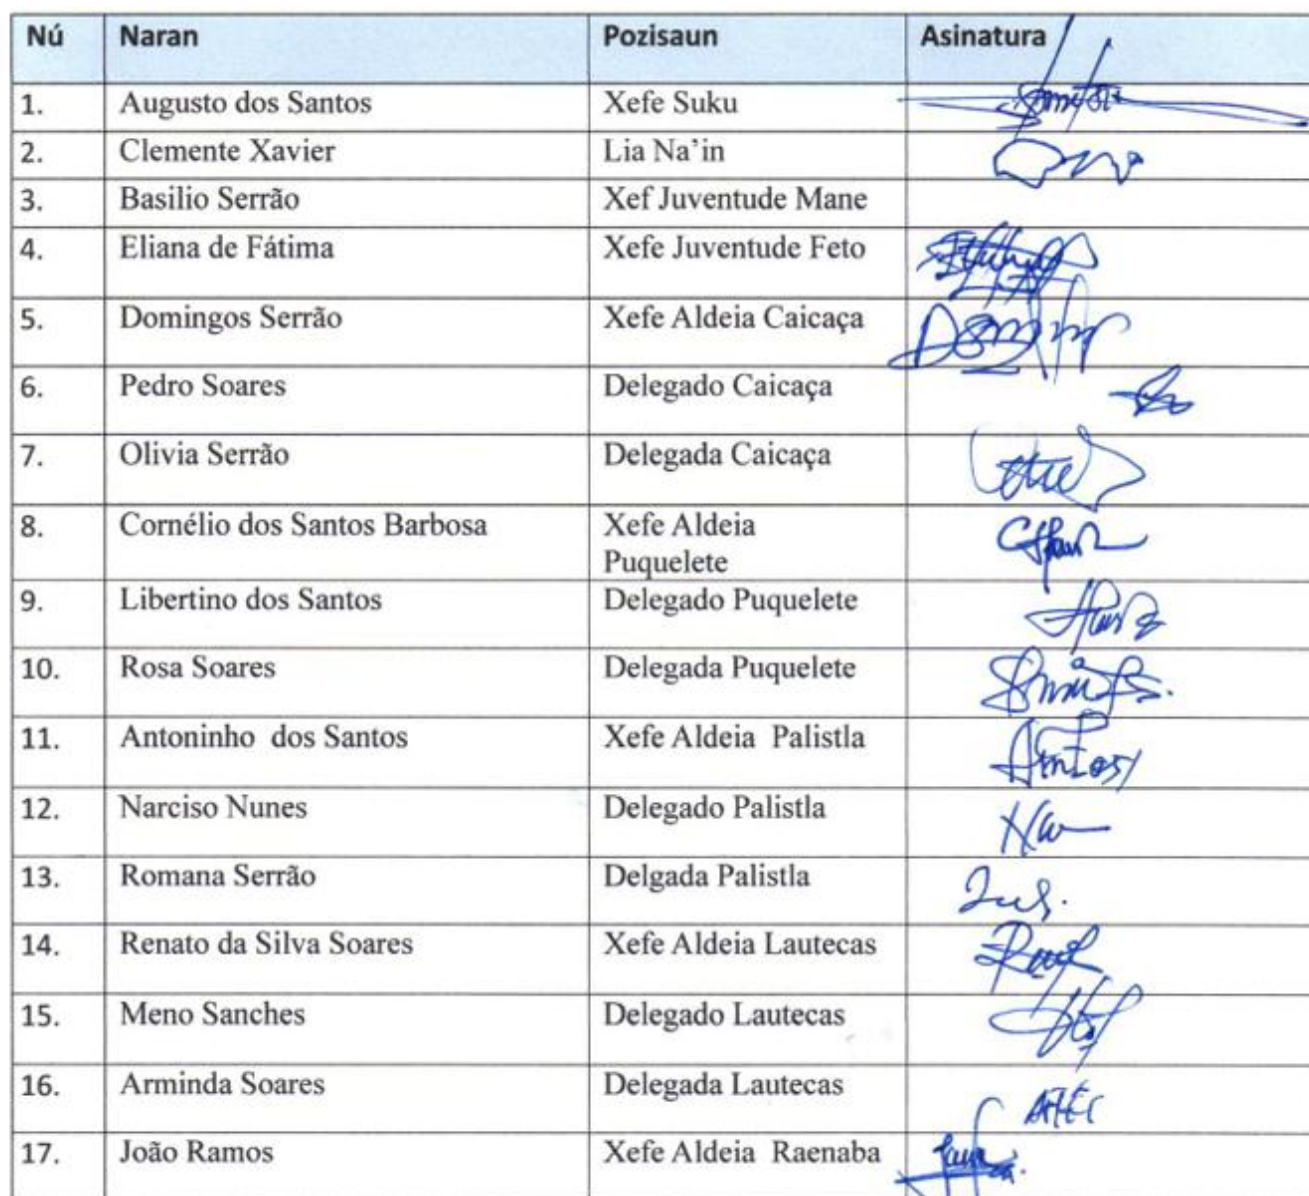 Nú Naran Pozisaun Asinatura
1. Augusto dos Santos Xefe Suku
2. Clemente Xavier Lia Na’in
3. Basilio Serrão Xef Juventude Mane
4. Eliana de Fátima Xefe Juventude Feto
5. Domingos Serrão Xefe Aldeia Caicaça
6. Pedro Soares Delegado Caicaça
7. Olivia Serrão Delegada Caicaça
8. Cornélio dos Santos Barbosa Xefe Aldeia
Puquelete
9. Libertino dos Santos Delegado Puquelete
10. Rosa Soares Delegada Puquelete
11. Antoninho dos Santos Xefe Aldeia Palistla
12. Narciso Nunes Delegado Palistla
13. Romana Serrão Delgada Palistla
14. Renato da Silva Soares Xefe Aldeia Lautecas
15. Meno Sanches Delegado Lautecas
16. Arminda Soares Delegada Lautecas
17. João Ramos Xefe Aldeia Raenaba